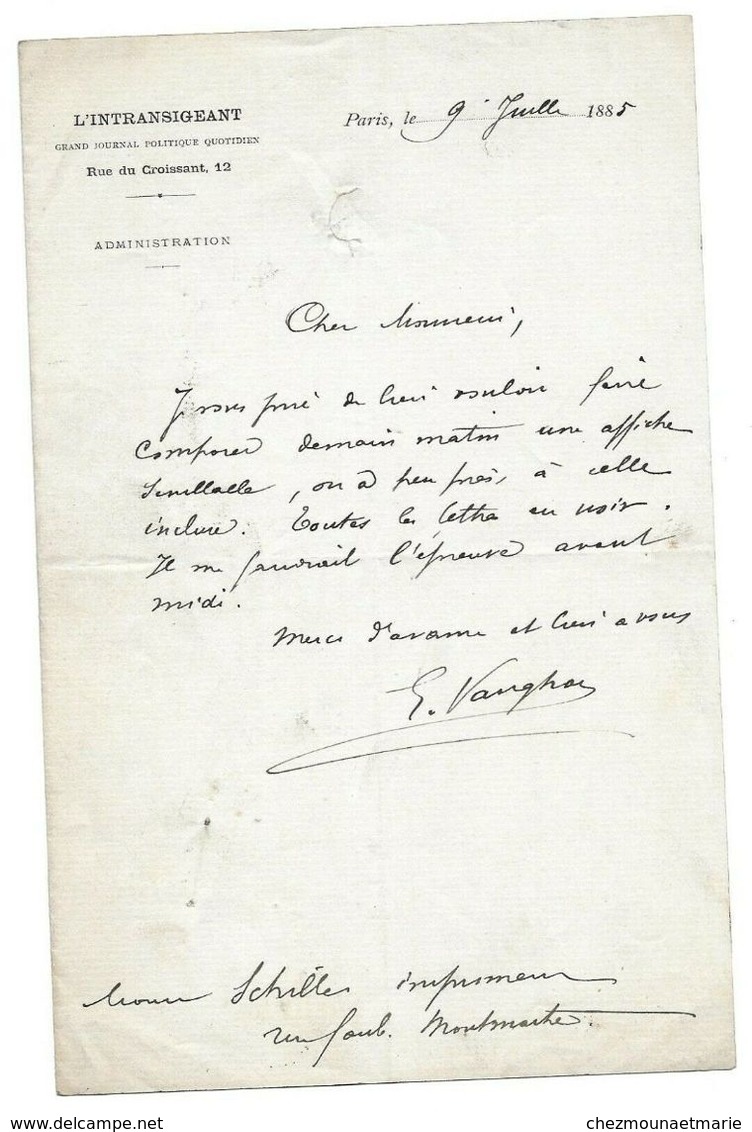 L'INTRANSIGEANT
GRAND JOURNAL POLITIQUE QUOTIDIEN
Rue du Croissant, 12
ADMINISTRATION
Paris, le 9 Juillet 1885
Cher Monsieur,
Je vous prie de bien vouloir faire
composer demain matin une affiche
semblable, ou à peu près, à celle
incluse. Toutes les lettres en noir.
Il me faudrait l'épreuve avant
midi.
Merci d'avance et bien à vous
E. Vaughan
Monsieur Schiller imprimeur
rue faub. Montmartre.
chezmounaetmarie
www.delcampe.net